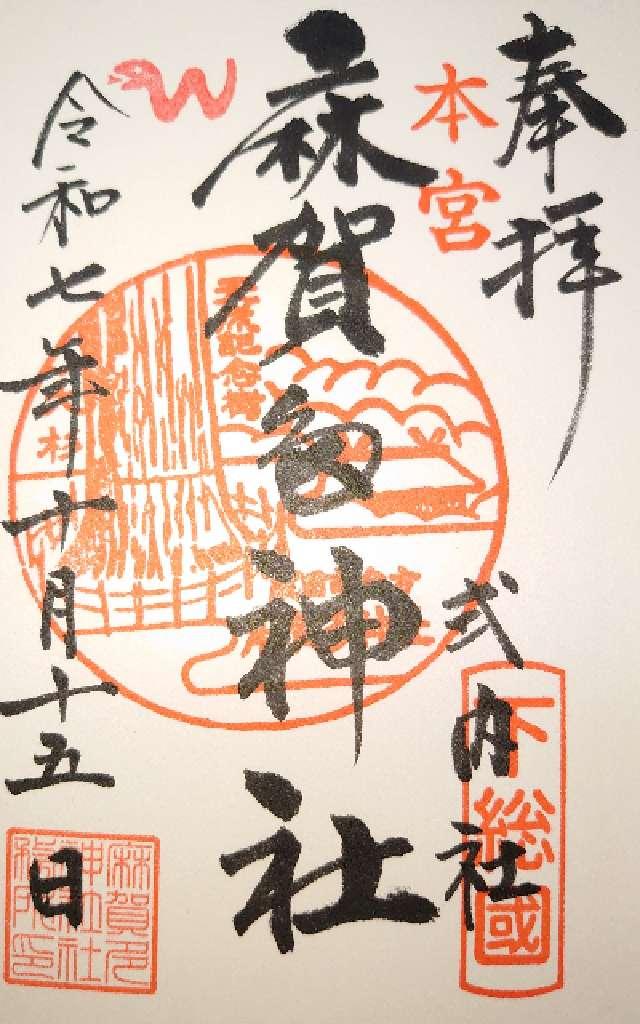 奉拝
本宮
式内社
下総國
麻賀多神社
天然記念物
杉
令和七年十月十五日
麻賀多
神社社
務所印